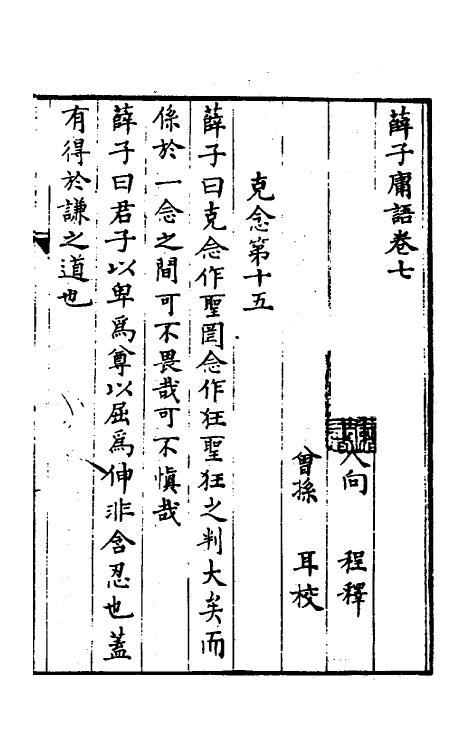 薛子庸語卷七
人向　程釋
曾孫　耳校
克念第十五
薛子曰克念作聖罔念作狂聖狂之判大矣而
係於一念之間可不畏哉可不慎哉
薛子曰君子以卑爲尊以屈爲伸非含忍也蓋
有得於謙之道也